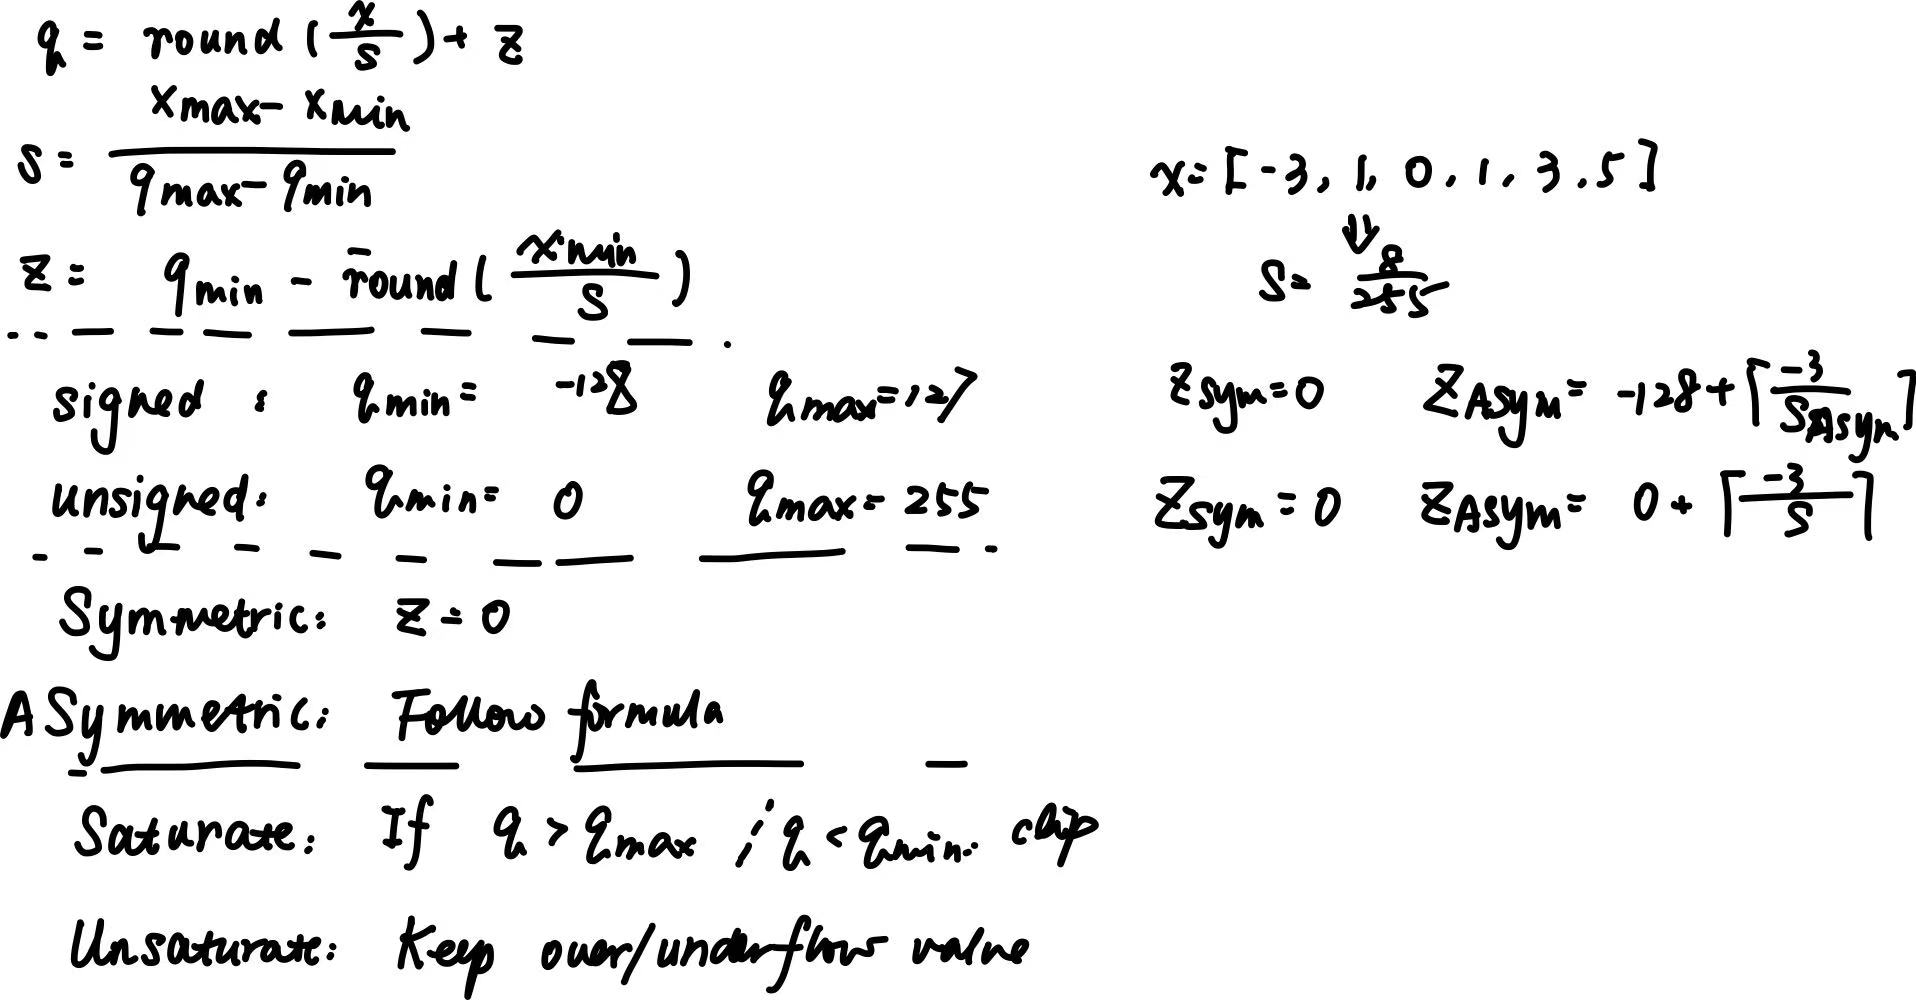 q = round(x/s) + z
s = (xmax - xmin) / (qmax - qmin)
z = qmin - round(xmin/s)
signed : qmin = -128 qmax = 127
unsigned: qmin = 0 qmax = 255
Symmetric: z = 0
ASymmetric: Follow formula
Saturate: If q > qmax ; q < qmin. clip
Unsaturate: Keep over/underflow value
x = [-3, 1, 0, 1, 3, 5]
⇓
s = 8/255
zsym = 0 ZAsym = -128 + ⌈-3/SAsym⌉
Zsym = 0 ZAsym = 0 + ⌈-3/s⌉